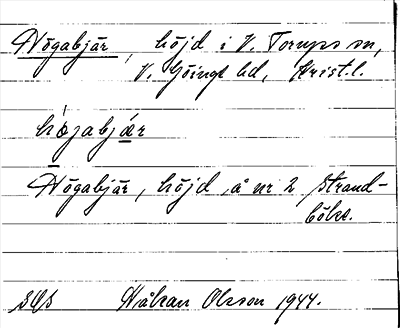 Högabjär, höjd i V. Torups sn,
V. Göinge hd, Krist.l.
högabjär
Högabjär, höjd å nr 2 Strand-
böke.
SOS Håkan Olsson 1944.